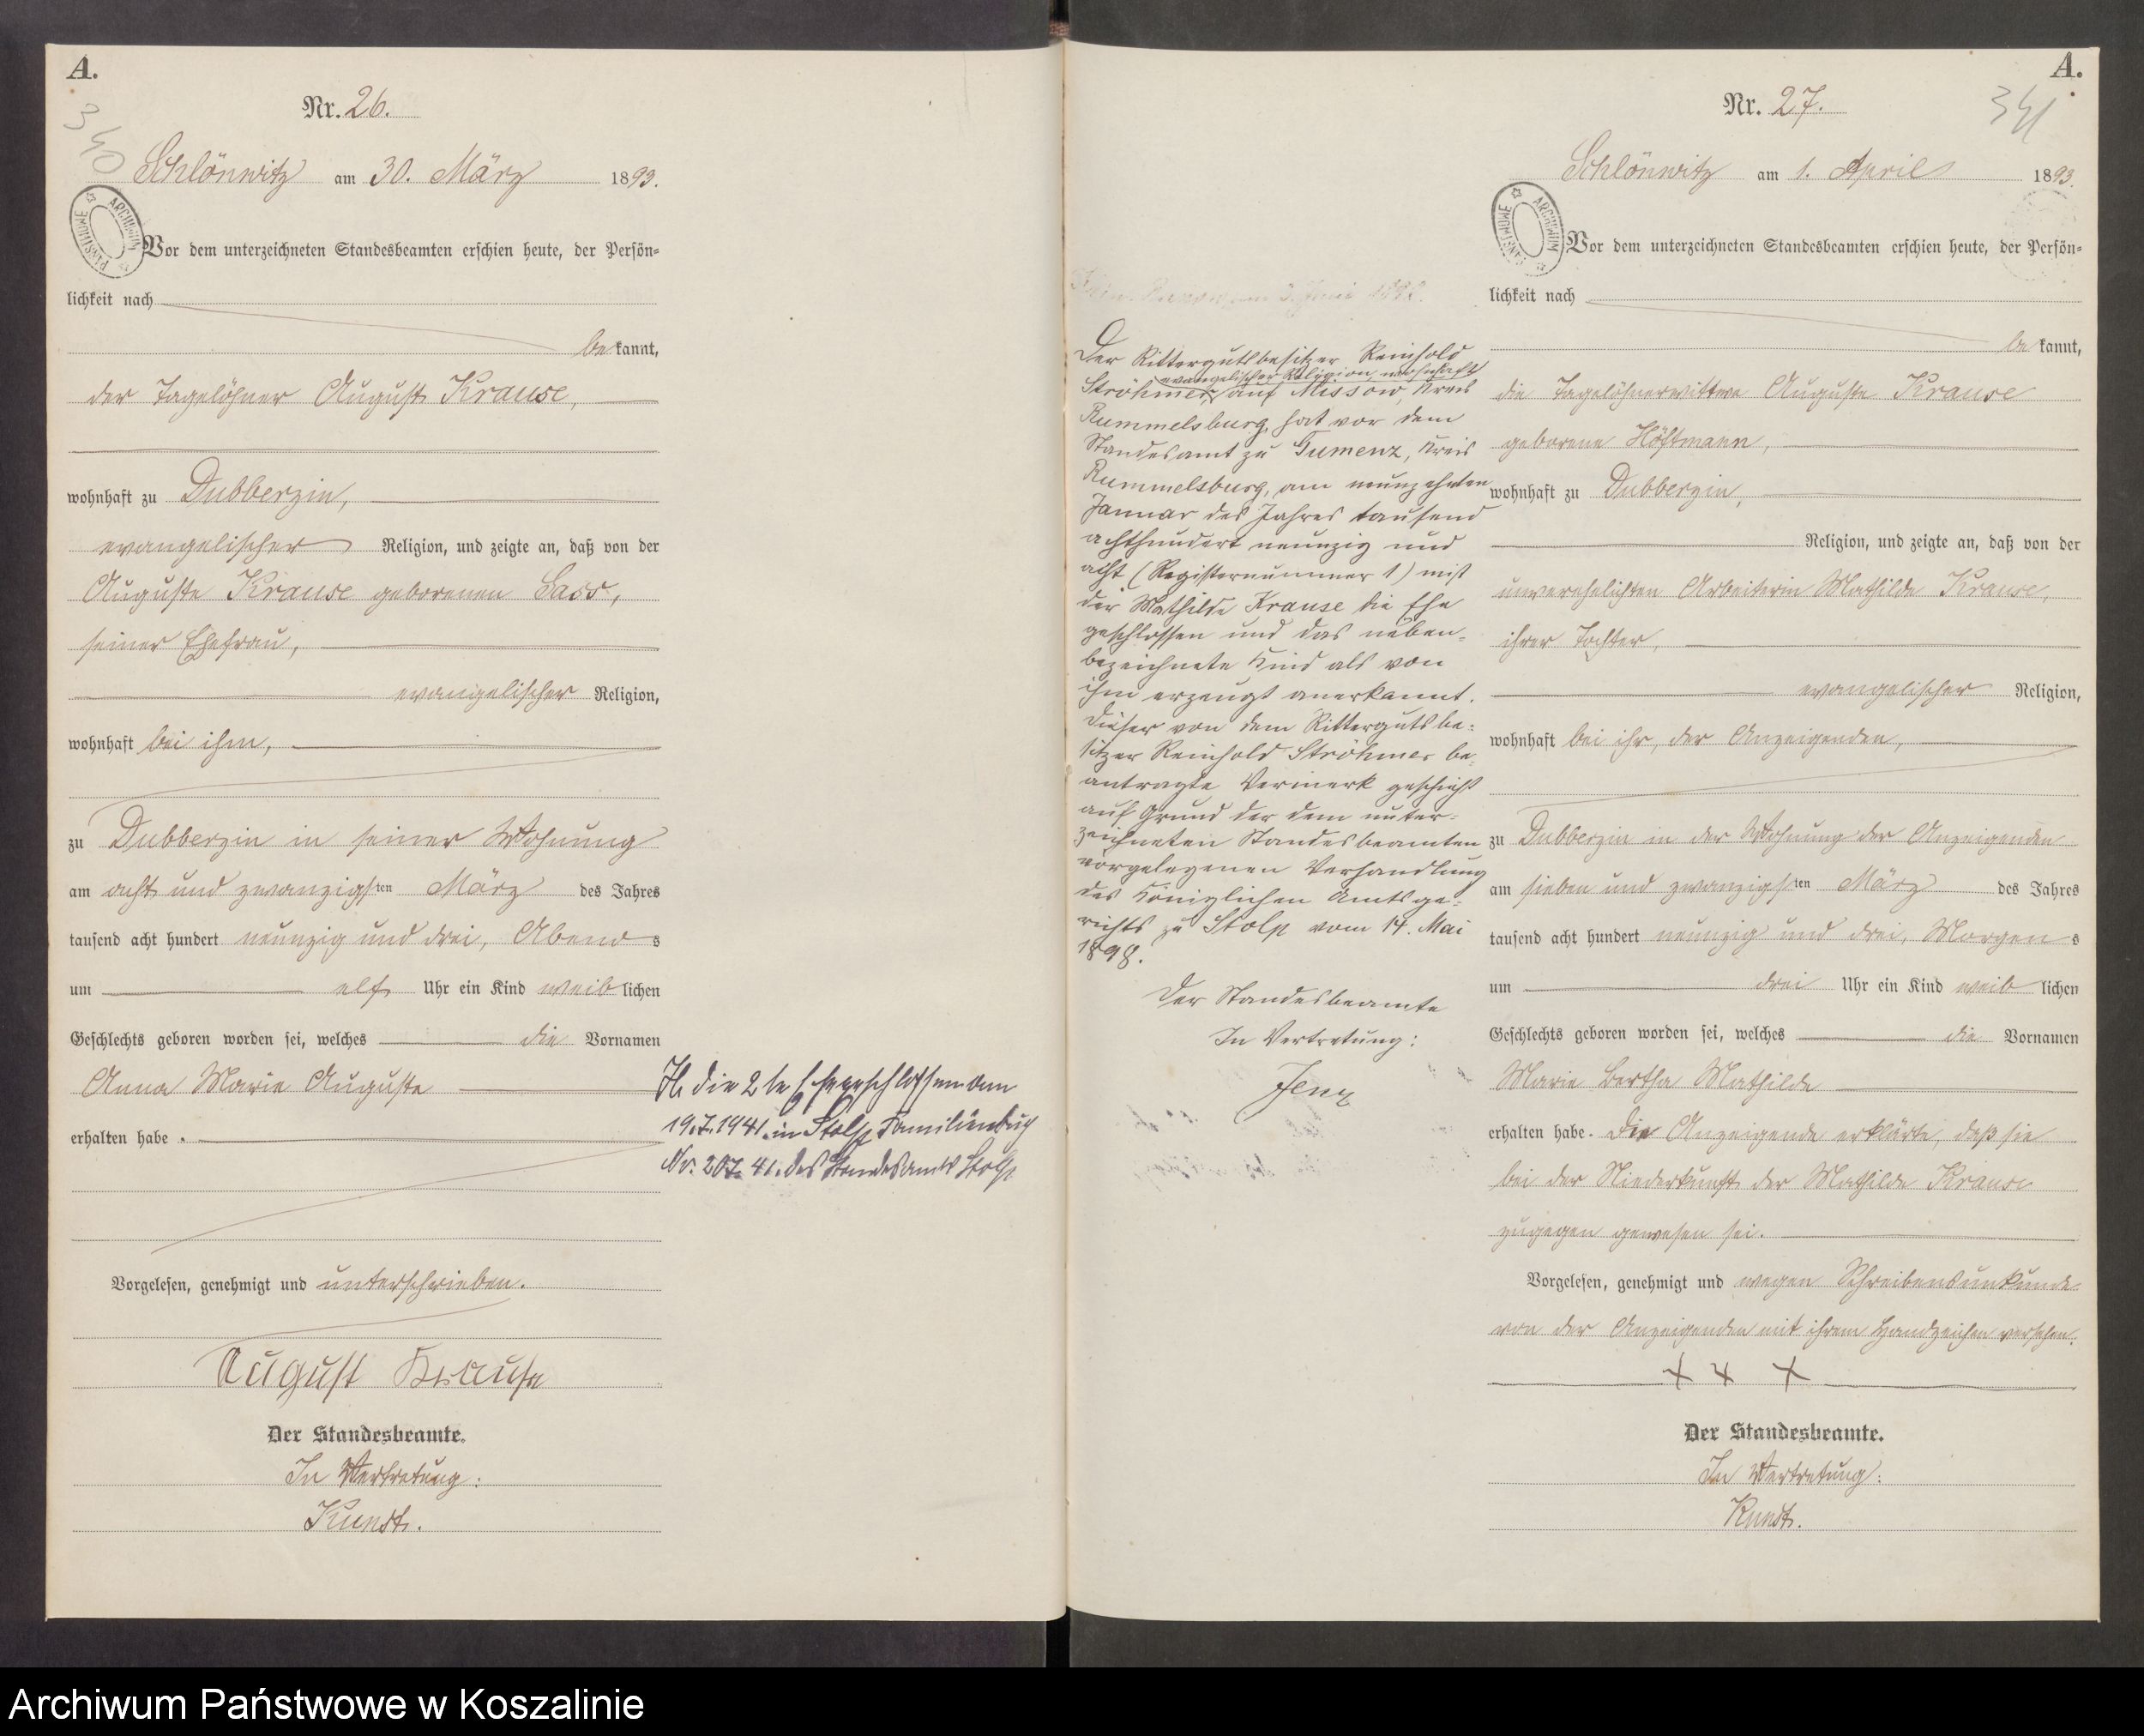 A.
340
Nr. 26.
Schlönwitz am 30. März 1893.
ARCHIWUM PAŃSTWOWE
Vor dem unterzeichneten Standesbeamten erschien heute, der Persön-
lichkeit nach
bekannt,
der Tagelöhner August Krause,
wohnhaft zu Dubberzin,
evangelischer Religion, und zeigte an, daß von der
Auguste Krause geborenen Sass,
seiner Ehefrau,
evangelischer Religion,
wohnhaft bei ihm,
zu Dubberzin in seiner Wohnung
am acht und zwanzigsten März des Jahres
tausend acht hundert neunzig und drei, Abends
um elf Uhr ein Kind weiblichen
Geschlechts geboren worden sei, welches die Vornamen
Anna Marie Auguste
erhalten habe.
Vorgelesen, genehmigt und unterschrieben.
August Krause
Der Standesbeamte.
In Vertretung:
Kundt.
die 2te Ehe geschlossen am
19.7.1941. in Stolp Familienbuch
Nr. 207.41. des Standesamts Stolp
Juni 1898.
Der Rittergutsbesitzer Reinhold
evangelischer Religion, wohnhaft
Ströhmer, auf Missow, Kreis
Rummelsburg, hat vor dem
Standesamt zu Gumenz, Kreis
Rummelsburg, am neunzehnten
Januar des Jahres tausend
achthundert neunzig und
acht (Registernummer 1) mit
der Mathilde Krause die Ehe
geschlossen und das neben-
bezeichnete Kind als von
ihm erzeugt anerkannt.
Dieser von dem Rittergutsbe-
sitzer Reinhold Ströhmer be-
antragte Vermerk geschieht
auf Grund der dem unter-
zeichneten Standesbeamten
vorgelegenen Verhandlung
des Königlichen Amtsge-
richts zu Stolp vom 14. Mai
1898.
Der Standesbeamte
In Vertretung:
A.
341
Nr. 27.
Schlönwitz am 1. April 1893.
ARCHIWUM PAŃSTWOWE
Vor dem unterzeichneten Standesbeamten erschien heute, der Persön-
lichkeit nach
bekannt,
die Tagelöhnerwittwe Auguste Krause
geborene Höftmann,
wohnhaft zu Dubberzin,
Religion, und zeigte an, daß von der
unverehelichten Arbeiterin Mathilde Krause,
ihrer Tochter,
evangelischer Religion,
wohnhaft bei ihr, der Anzeigenden,
zu Dubberzin in der Wohnung der Anzeigenden
am sieben und zwanzigsten März des Jahres
tausend acht hundert neunzig und drei, Morgens
um drei Uhr ein Kind weiblichen
Geschlechts geboren worden sei, welches die Vornamen
Marie Bertha Mathilde
erhalten habe. Die Anzeigende erklärte, daß sie
bei der Niederkunft der Mathilde Krause
zugegen gewesen sei.
Vorgelesen, genehmigt und wegen Schreibensunkunde
von der Anzeigenden mit ihrem Handzeichen versehen.
+ + +
Der Standesbeamte.
In Vertretung:
Kundt.
Archiwum Państwowe w Koszalinie